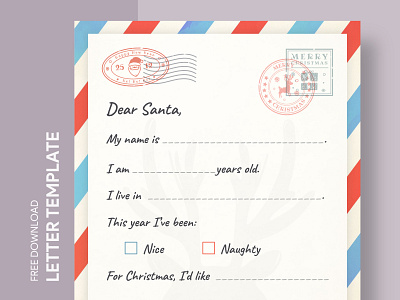 FREE DOWNLOAD
LETTER TEMPLATE
25 12
MERRY
CHRISTMAS
Dear Santa,
My name is ____________________.
I am __________ years old.
I live in ____________________.
This year I've been:
Nice
Naughty
For Christmas, I'd like ____________